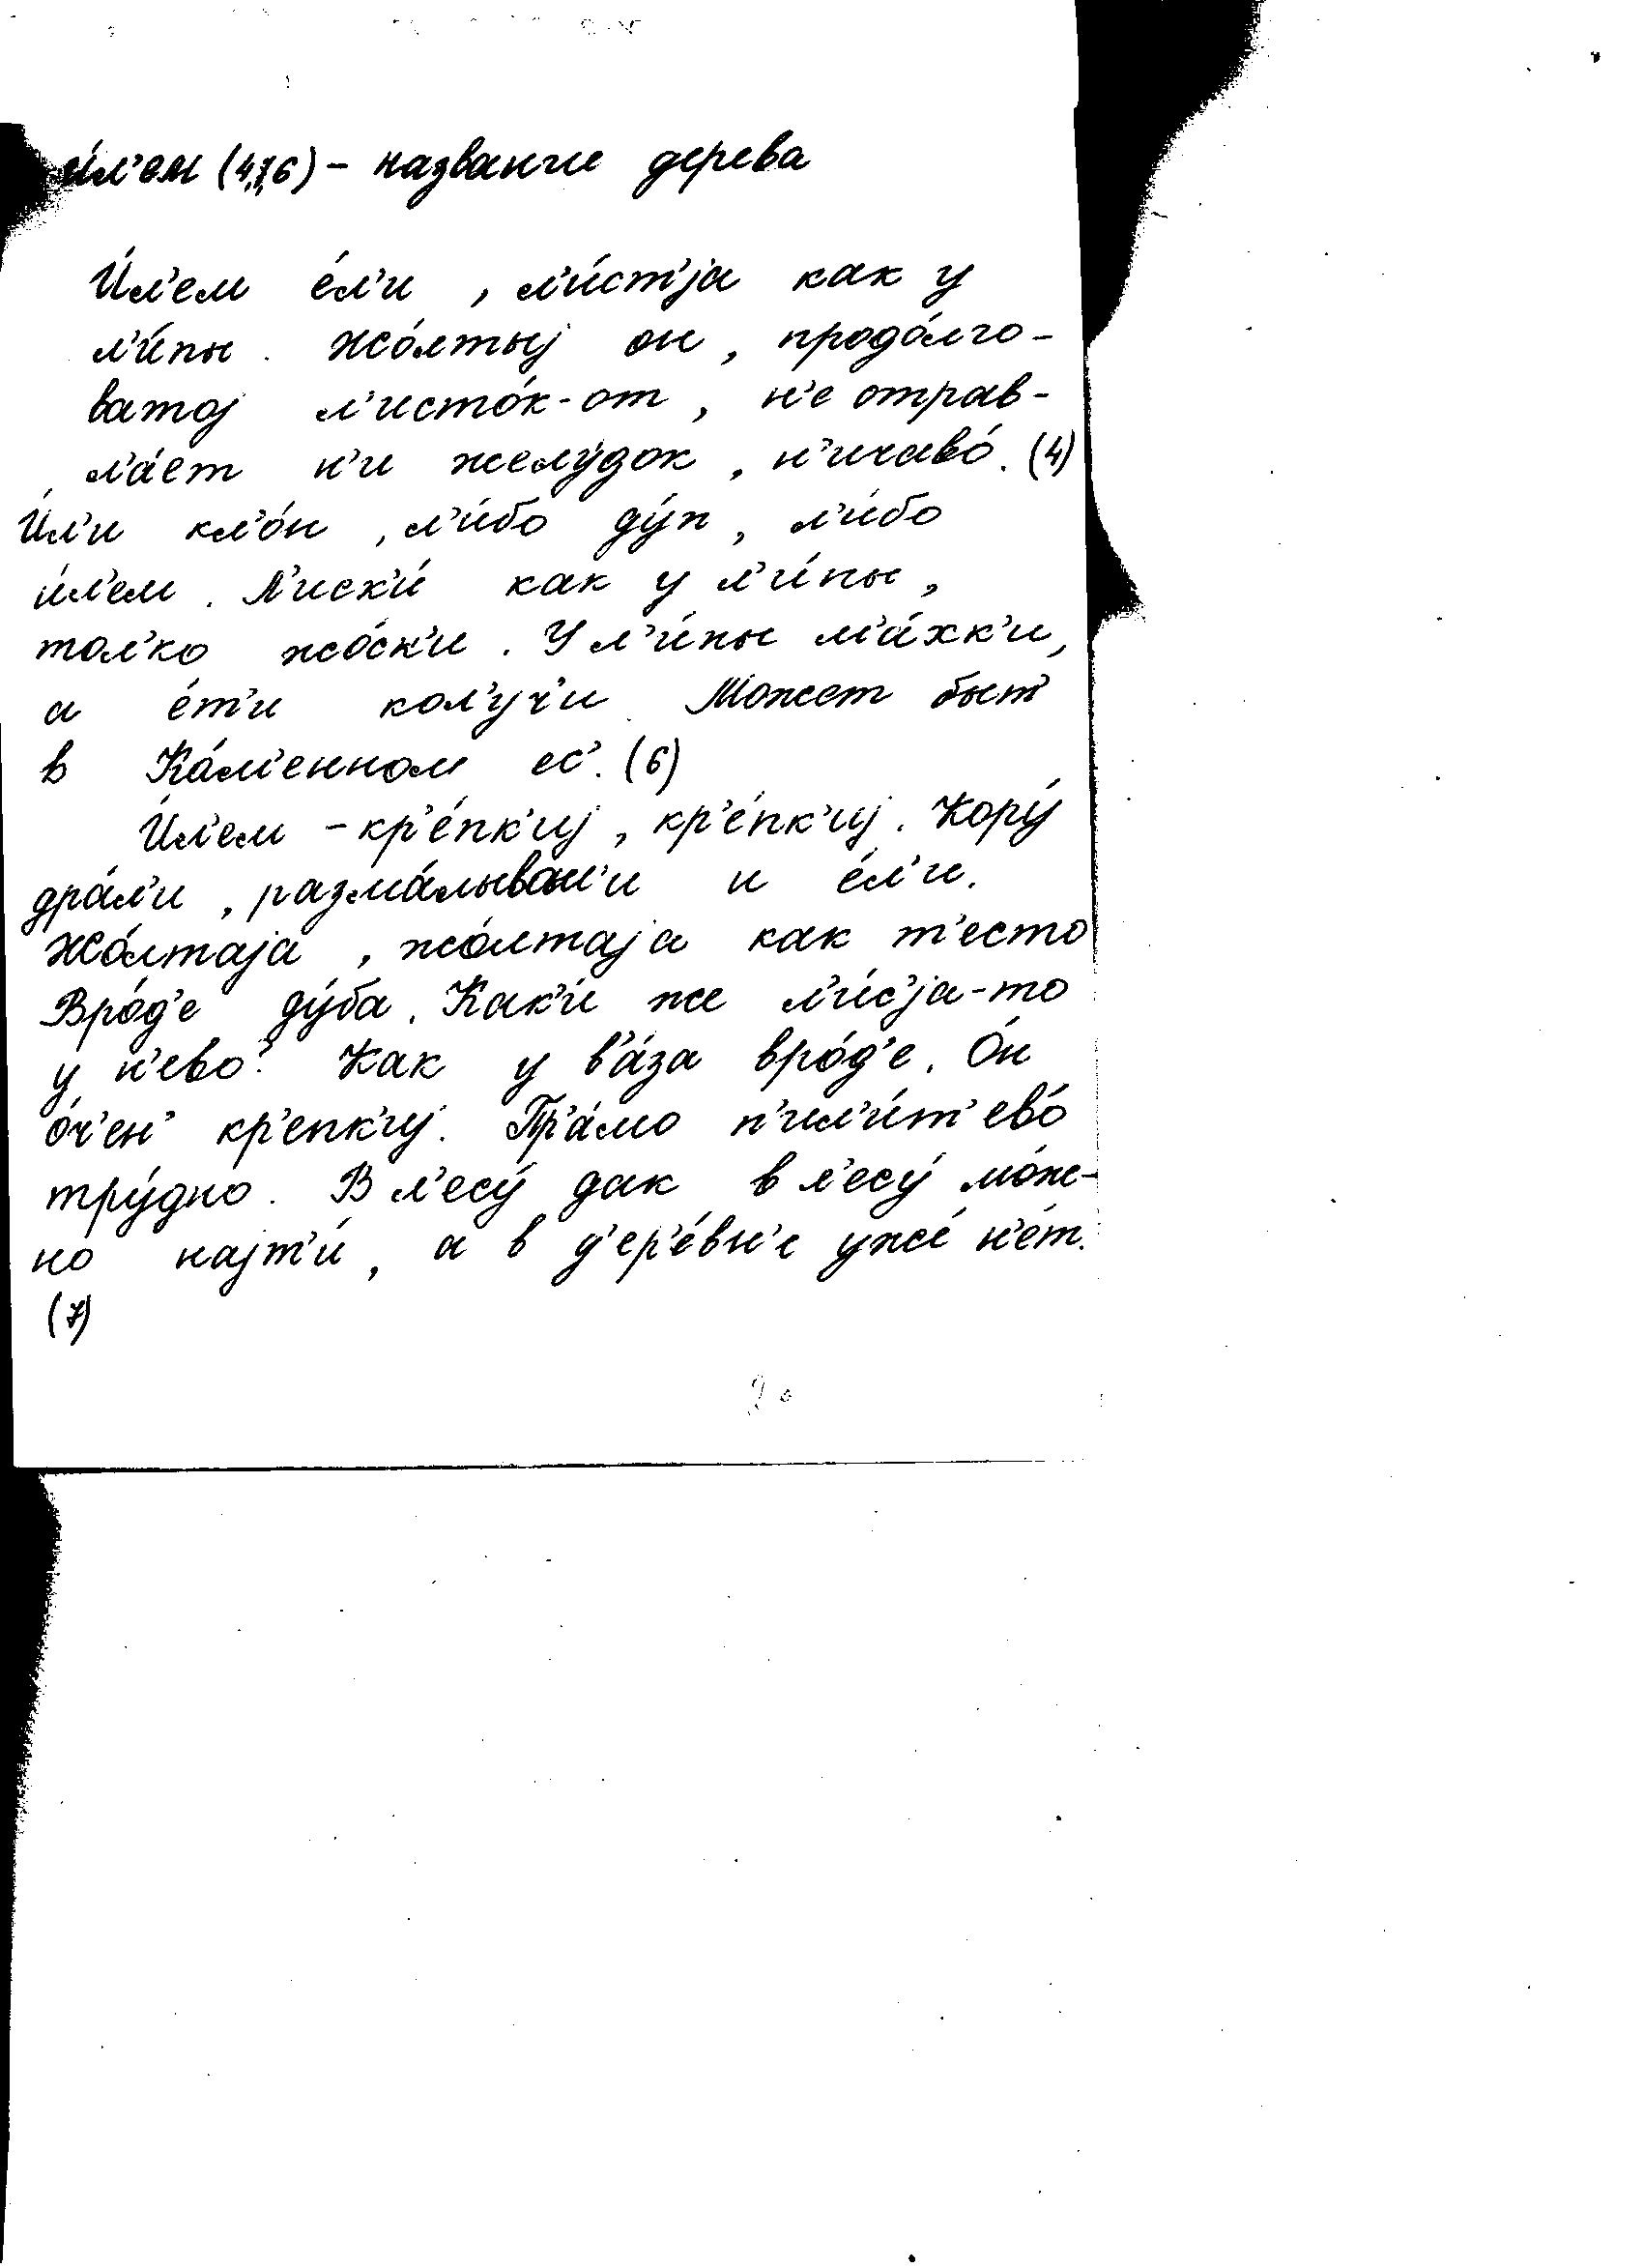 и́л'ем (4,7,6) – название дерева
И́л'ем е́л'и, л'и́ст'jа как у
л'и́пы. Жо́лтыj он, продо́лго-
ватоj л'исто́к-от, н'е отрав-
л'а́ет н'и желу́док, н'ичаво́. (4)
И́л'и кл'о́н, л'и́бо ду́п, л'и́бо
и́л'ем. Л'иск'и́ как у л'и́пы,
тол'ко жо́ск'и. У л'и́пы м'а́хк'и,
а е́т'и кол'уч'и. Может быт'
в Ка́м'енном ес'. (6)
И́л'ем – кр'е́пк'иj, кр'е́пк'иj. Кору́
дра́л'и, разма́лывал'и и е́л'и.
Жо́лтаjа, жо́лтаjа как т'есто
Вро́д'е ду́ба. Как'и́ же л'и́с'jа-то
у н'ево? Как у в'а́за вро́д'е. О́н
о́ч'ен' кр'епк'иj. Пр'а́мо п'ил'и́т' ево́
тру́дно. В л'есу́ дак в л'есу́ мо́ж-
но наjт'и́, а в д'ер'е́вн'е уже́ н'е́т.
(7)